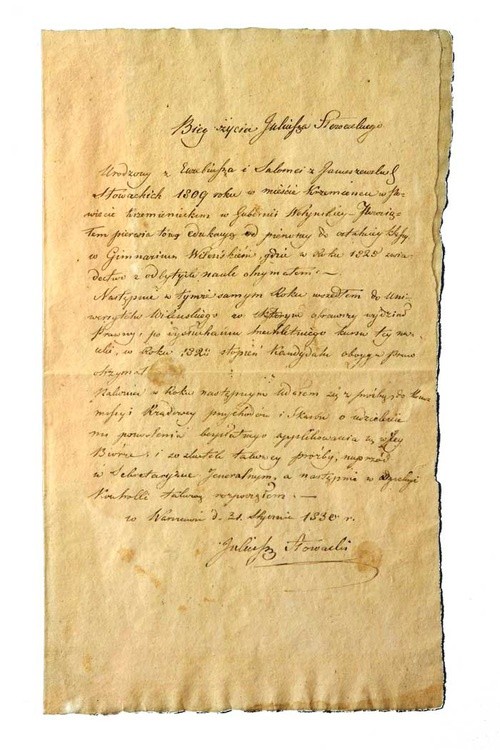 Bieg życia Juliusza Słowackiego
Urodzony z Euzebiusza i Salomei z Januszewskich
Słowackich 1809 roku w mieście Krzemieńcu w Po-
wiecie Krzemienieckim w Gubernii Wołyńskiey
pierwia edukacyą od pierwszey do ostatniey klassy
w Gimnazium Wileńskiem, gdzie w Roku 1825 swia-
dectwo z odbytych nauk otrzymałem. —
Następnie w tymże samym Roku wszedłem do Uni-
wersytetu Wileńskiego, w którym obrawszy wydział
prawny, po wysłuchaniu kursu tey na-
uki, w Roku 1828 stopień Kandydata oboyga praw
otrzymał
w Roku następnym udałem się z prośbą do Kom-
missyi Rządowey przychodów i Skarbu o udzielenie
mi pozwolenia bezpłatnego applikowania się w iey
Biurze; i ze skutek prośby, naprzód
w Sekretaryacie Jeneralnym, a następnie w
Kontrolli rozpocząłem. —
w Warszawie d. 21. Stycznia 1830 r.
Juliusz Słowacki